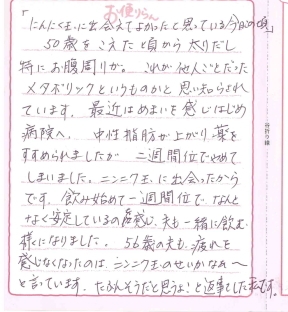 お便りらん
「にんにく玉に出会えてよかったと思っている今日の頃」
50歳をこえた頃から太りだし
特にお腹周りが。これが他人ごとだった
メタボリックというものかと思い知らされ
ています。最近はめまいを感じはじめ
病院へ。中性脂肪が上がり、薬を
すすめられましたが 二週間位でやめて
しまいました。ニンニク玉に出会ったから
です。飲み始めて一週間位で なんと
なく安定しているの 感じ、夫も一緒に飲む
様になりました。56歳の夫も 疲れを
感じなくなったのは、ニンニク玉のせいかなぁ〜
と言っています。たぶんそうだと思うよ!と返事をした私です。
谷折り線